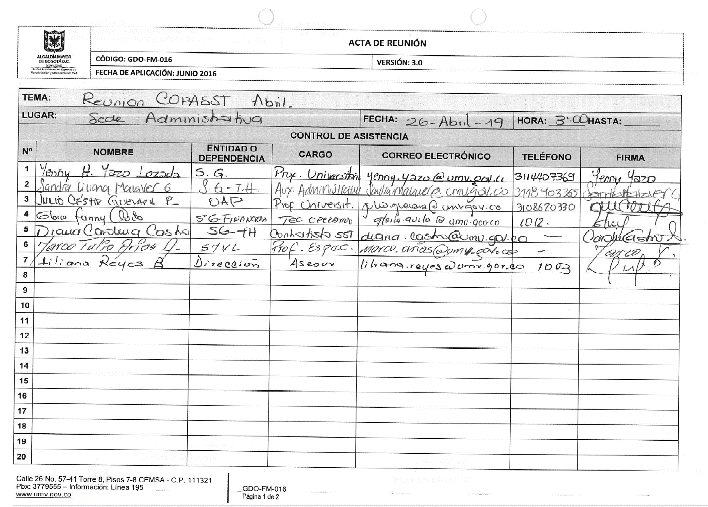 ALCALDÍA MAYOR
DE BOGOTÁ D.C.
ACTA DE REUNIÓN
CÓDIGO: GDO-FM-016
VERSIÓN: 3.0
FECHA DE APLICACIÓN: JUNIO 2016
TEMA: Reunion COPASST Abril.
LUGAR: Sede Administrativa FECHA: 26-Abril-19 HORA: 3:00 HASTA:
CONTROL DE ASISTENCIA
Nº NOMBRE ENTIDAD O DEPENDENCIA CARGO CORREO ELECTRÓNICO TELÉFONO FIRMA
1 Yenny A. Yazo Lozada S.G. Prof. Universitario yenny.yazo@umv.gov.co 3114407369 Yenny Yazo
2 Sandra Liliana Malaver G SG-TH Aux. Administrativo
3 Julio Cesar Guevara P_ UAP Prof Universit. 3108620330
4 Gloria Fanny SG-Financiera Tec 1012.
5 Diana Carolina Castro SG-TH Contratista SST diana.castro@umv.gov.co -
6 Marco Tulio Arias D. STVL Prof. Espec. marco.arias@umv.gov.co -
7 Liliana Reyes B Dirección Asesor liliana.reyes@umv.gov.co 1003
8
9
10
11
12
13
14
15
16
17
18
19
20
Calle 26 No. 57-41 Torre 8, Pisos 7-8 CEMSA - C.P. 111321
Pbx: 3779555 – Información: Línea 195
www.umv.gov.co
GDO-FM-016
Página 1 de 2